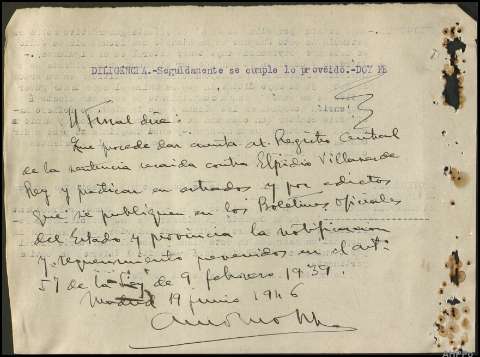 DILIGENCIA.-Seguidamente se cumple lo proveído.-DOY FE
El Fiscal dice:
Que procede dar cuenta al Registro Central
de la sentencia recaida contra Elpidio Villaverde
Rey y practicar en estrados y por edictos
que se publiquen en los Boletines Oficiales
del Estado y provincia la notificacion
y requerimiento prevenidos en el artº
57 de la Ley de 9 febrero 1939.
Madrid 19 junio 1946